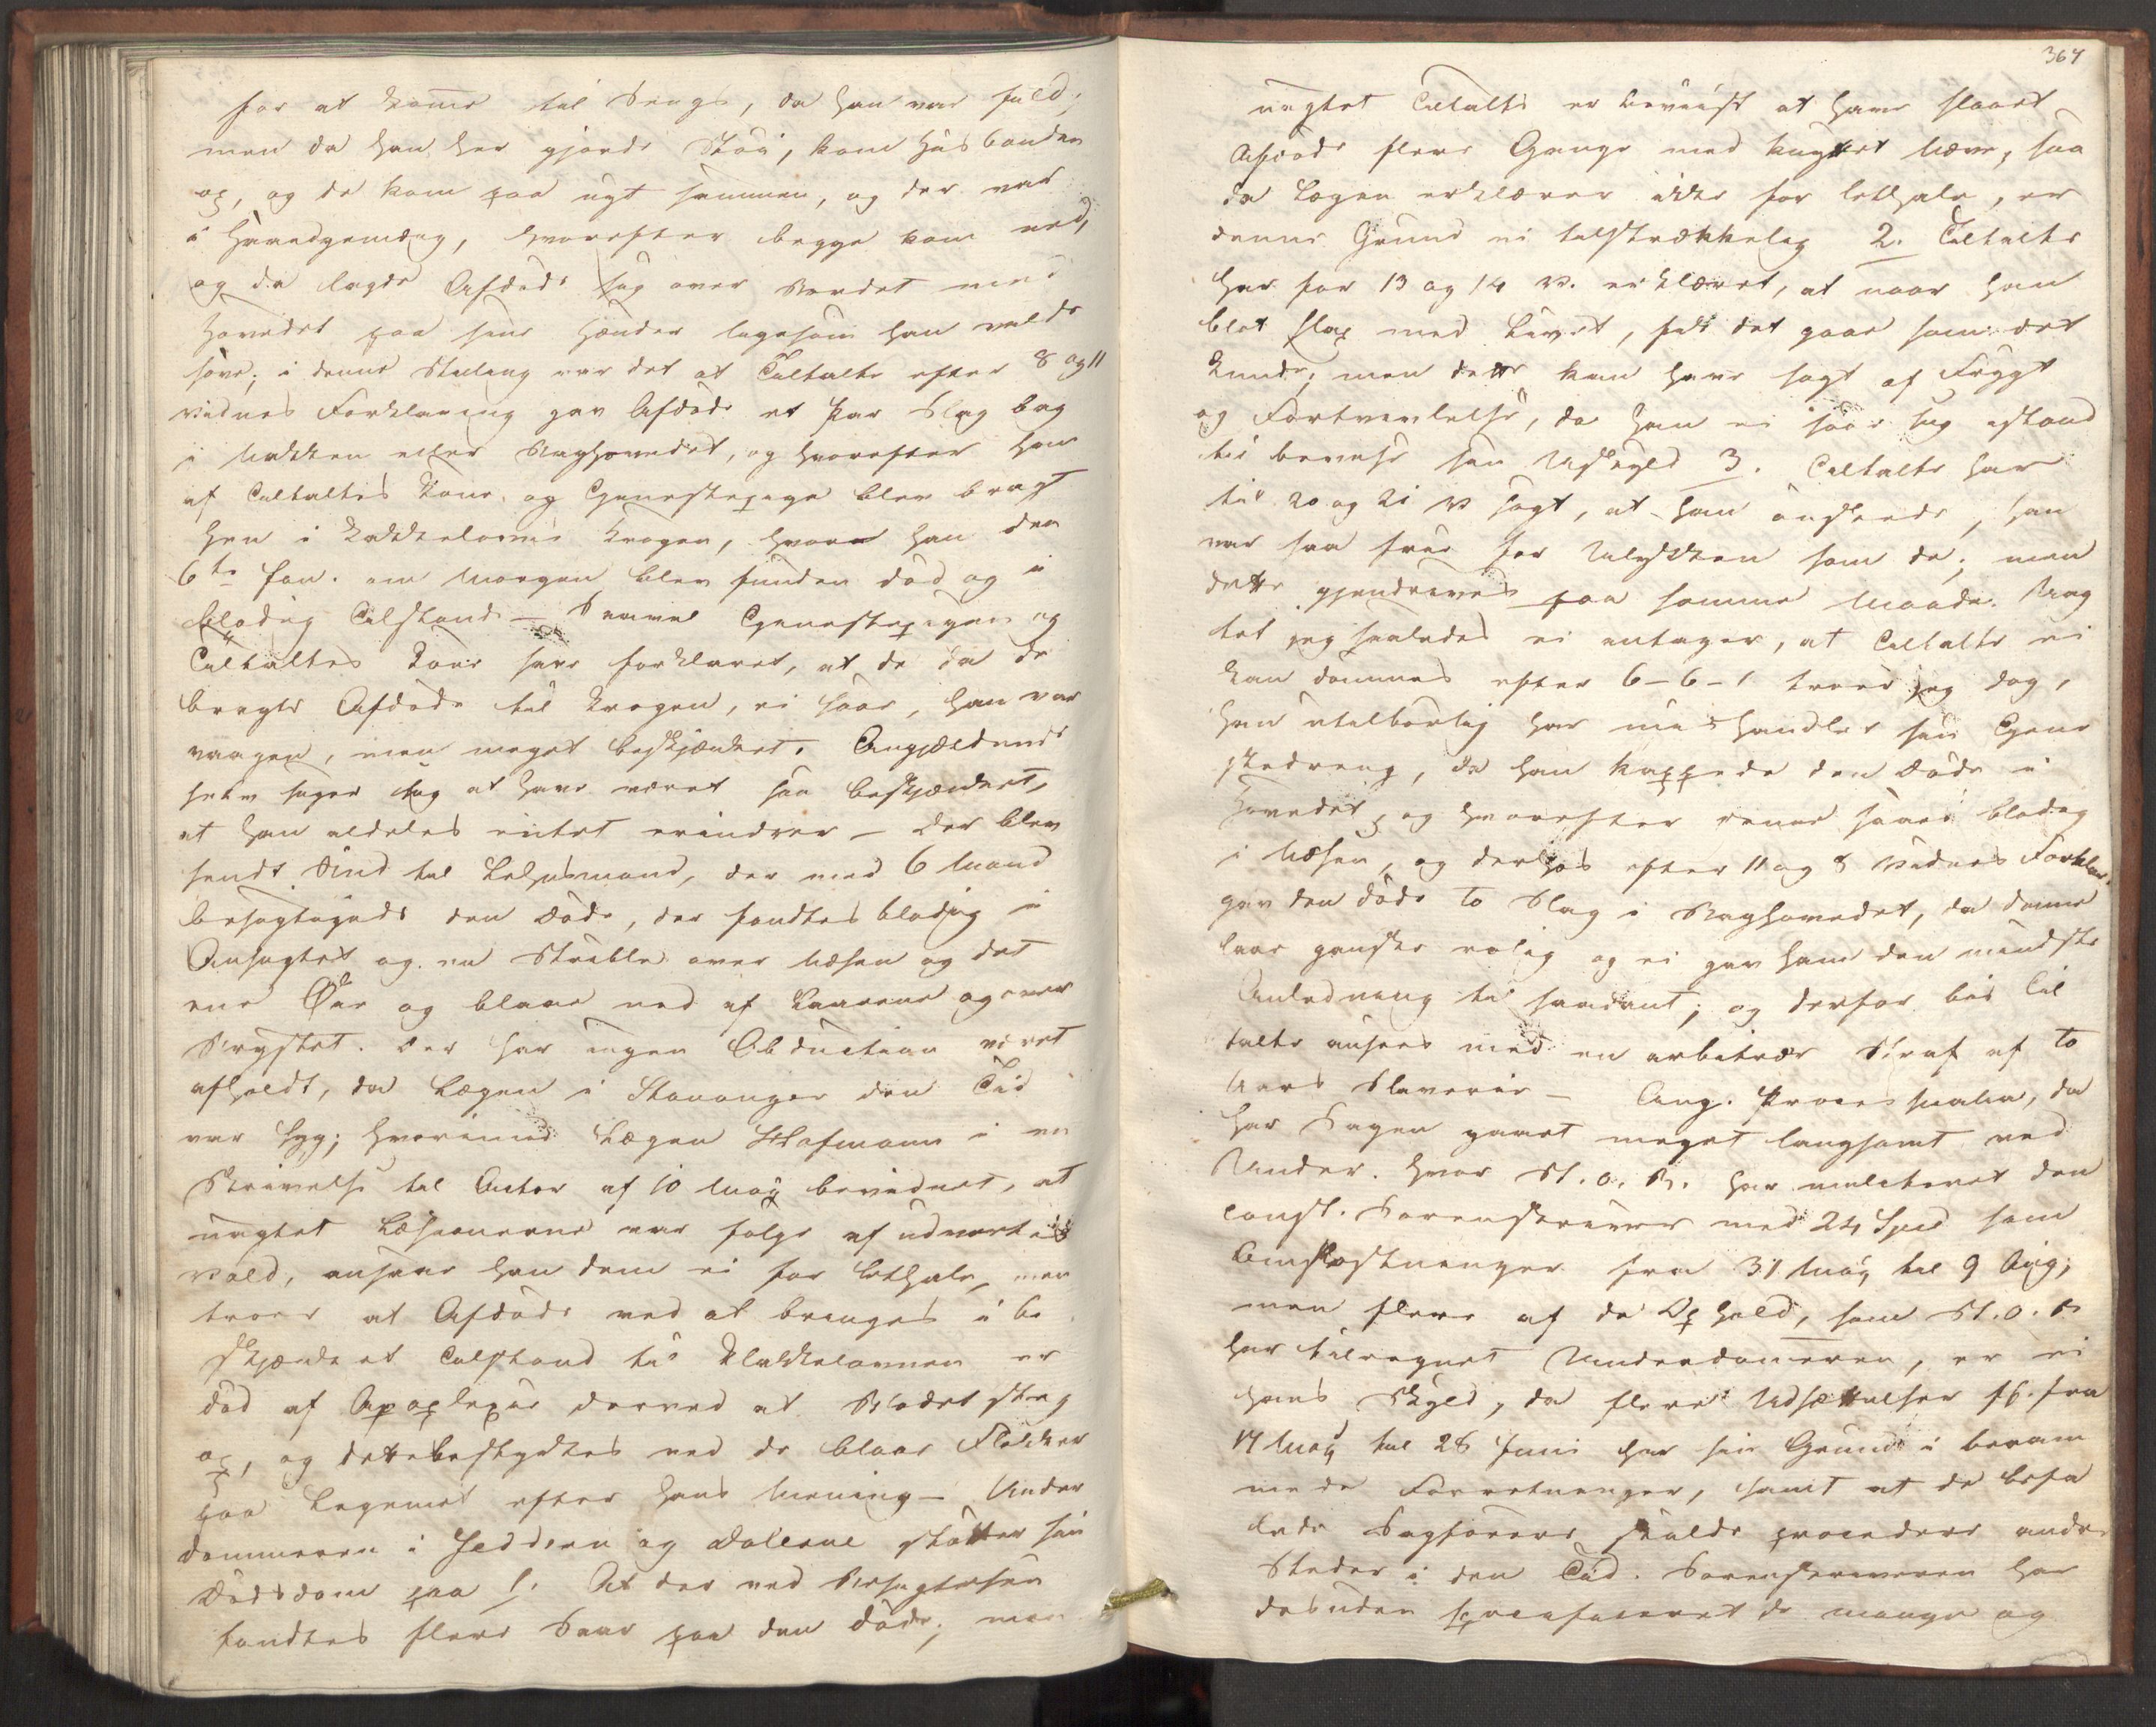 for at komme til Sengs, da han var fuld;
men da han her gjorde Støi, kom Husbonden
op, og de kom paa nyt sammen, og der var
i Haandgemæng, hvorefter begge kom ned,
og da lagde Afdøde sig over Bordet med
Hovedet paa sine Hænder ligesom han vilde
sove; i denne Stilling var det at Tiltalte efter 8 og 11
Vidnes Forklaring gav Afdøde et Par Slag bag
i Nakken eller Baghovedet, og hvorefter han
af Tiltaltes Kone og Tjenestepige blev bragt
hen i Kakkelovns Krogen, hvor han den
6te Jan. om Morgen blev funden død og i
blodig Tilstand – Saavel Tjenestepigen og
Tiltaltes Kone have forklaret, at de da de
bragte Afdøde til Krogen, ei saae, han var
vaagen, men meget beskjænket. Angjældende
selv siger sig at have været saa beskjænket,
at han aldeles intet erindrer – Der blev
sendt Bud til Lehnsmand, der med 6 Mænd
besigtigede den Døde, der fandtes blodig i
Ansigtet og en Skrabbe over Næsen og det
ene Øie og blaae ned af Laarene og over
Brystet. Der har ingen Obduction været
afholdt, da Lægen i Stavanger den Tid
var syg; hvorimod Lægen Hofmann i en
Skrivelse til Actor af 10 Maj bevidnet, at
uagtet Læsionerne var følge af udvortes
Vold, ansaae han dem ei for lethale, men
troer at Afdøde ved at bringes i be
skjænket Tilstand til Kakkelovnen er
død af Apoplexie derved at Blodet steg
op, og dette bestyrkes ved de blaae Flekker
paa Legemet efter hans Mening – Under
dommeren i Jedderen og Dalerne støtter sin
Dødsdom paa 1. At der ved Besigtelsen
fandtes flere Saar paa den Døde; men
364
uagtet Tiltalte er beviist at have slaaet
Afdøde flere Gange med knyttet Næve, saa
da Lægen erklærer ikke for lethale, er
denne Grund ei tilstrækkelig 2. Tiltalte
har for 13 og 14 V. erklæret, at naar han
blot slap med Livet, fik det gaae som det
kunde; men dette kan have sagt af Frygt
og Fortvivlelse, da han ei saae sig istand
til bevise sin Uskyld 3. Tiltalte har
til 20 og 21 V sagt, at han ønskede, han
var saa frie for Ulykken som de; men
dette gjendrives paa samme Maade. Uag
tet jeg saaledes ei antager, at Tiltalte ei
kan dømmes efter 6-6-1 troer jeg dog,
han utilbørlig har mishandlet sin Tjene
stedreng, da han kappede den Døde i
Hovedet, og hvorefter denne saaes blodig
i Næsen, og derhos efter 11 og 8 Vidnes Forklar.
gav den døde to Slag i Baghovedet, da denne
laae ganske rolig og ei gav ham den mindste
Anledning til saadant; og derfor bør Til
talte ansees med en arbitrær Straf af to
Aars Slaverie – Ang. Processualia, da
har Sagen gaaet meget langsomt ved
Under. hvor St. O. R. har mulcteret den
const. Sorenskriver med 24 Spd som
Omkostninger fra 31 Maj til 9 Aug;
men flere af de Ophold, som St. O. R
har tilregnet Underdomeren, er ei
hans Skyld, da flere Udsættelser f. fra
17 Maj til 28 Juni har sin Grund i beram
mede Forretninger, samt at de befa
lede Sagførere skulde procedere andre
Steder i den Tid. Sorenskriveren har
desuden specificeret de mange og